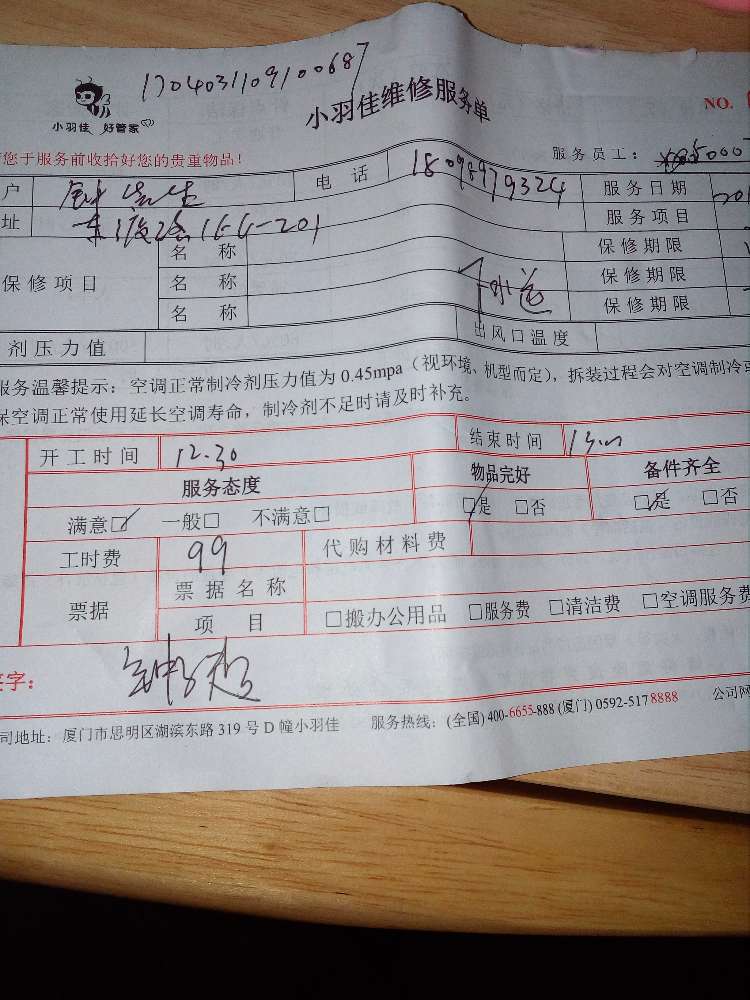 170403110910068​7
小羽佳维修服务单
NO.
小羽佳 好管家
您于服务前收拾好您的贵重物品！
服务员工：
户
电 话 18098979324
服务日期 201
址 16-G-201
服务项目
保修项目
名 称
保修期限
名 称
水
保修期限
名 称
保修期限
剂压力值
出风口温度
服务温馨提示：空调正常制冷剂压力值为 0.45mpa（视环境、机型而定），拆装过程会对空调制冷
保空调正常使用延长空调寿命，制冷剂不足时请及时补充。
开工时间 12.30
结束时间
服务态度
物品完好
备件齐全
满意□ 一般□ 不满意□
□是 □否
□是 □否
工时费 99
代购材料费
票据
票据名称
项 目
□搬办公用品 □服务费 □清洁费 □空调服务费
签字：
司地址：厦门市思明区湖滨东路 319 号 D 幢小羽佳 服务热线：(全国) 400-6655-888 (厦门) 0592-5178888 公司网